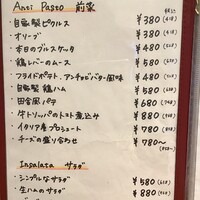 Anti Pasto 前菜
税込
・自家製ピクルス ¥380 (418)
・オリーブ ¥380 (418)
・本日のブルスケッタ ¥480 (528)
・鶏レバーのムース ¥580
・フライドポテト、アンチョビバター風味 ¥480 (528)
・自家製鶏ハム ¥580
・田舎風パテ ¥680 (748)
・牛トリッパのトマト煮込み ¥880
・イタリア産プロシュート ¥780
・チーズの盛り合わせ ¥780〜
Insalata サラダ
・シンプルなサラダ ¥580
・生ハムのサラダ ¥880